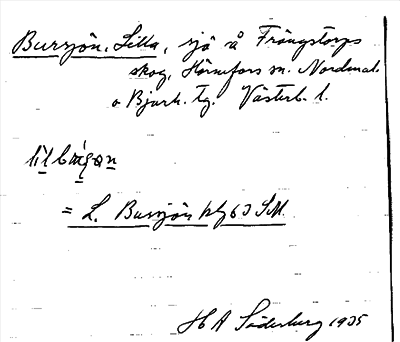 Bursjön, Lilla, sjö å Frängstorps
skog, Hörnefors sn. Nordmal.
o Bjurh. tg. Västerb. l.
= L. Bursjön bl 63 SM.
H A Söderberg 1935